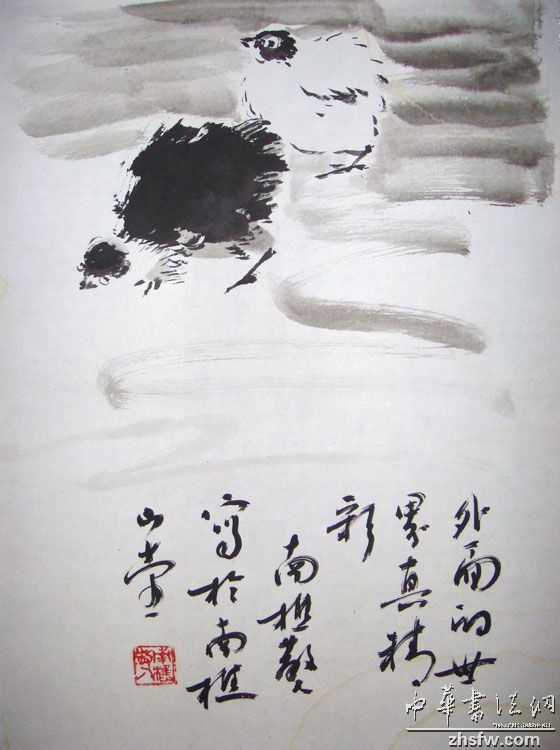 外面的世
界真精
彩
南樵
寫於南樵
山堂
中華書法網
zhsfw.com